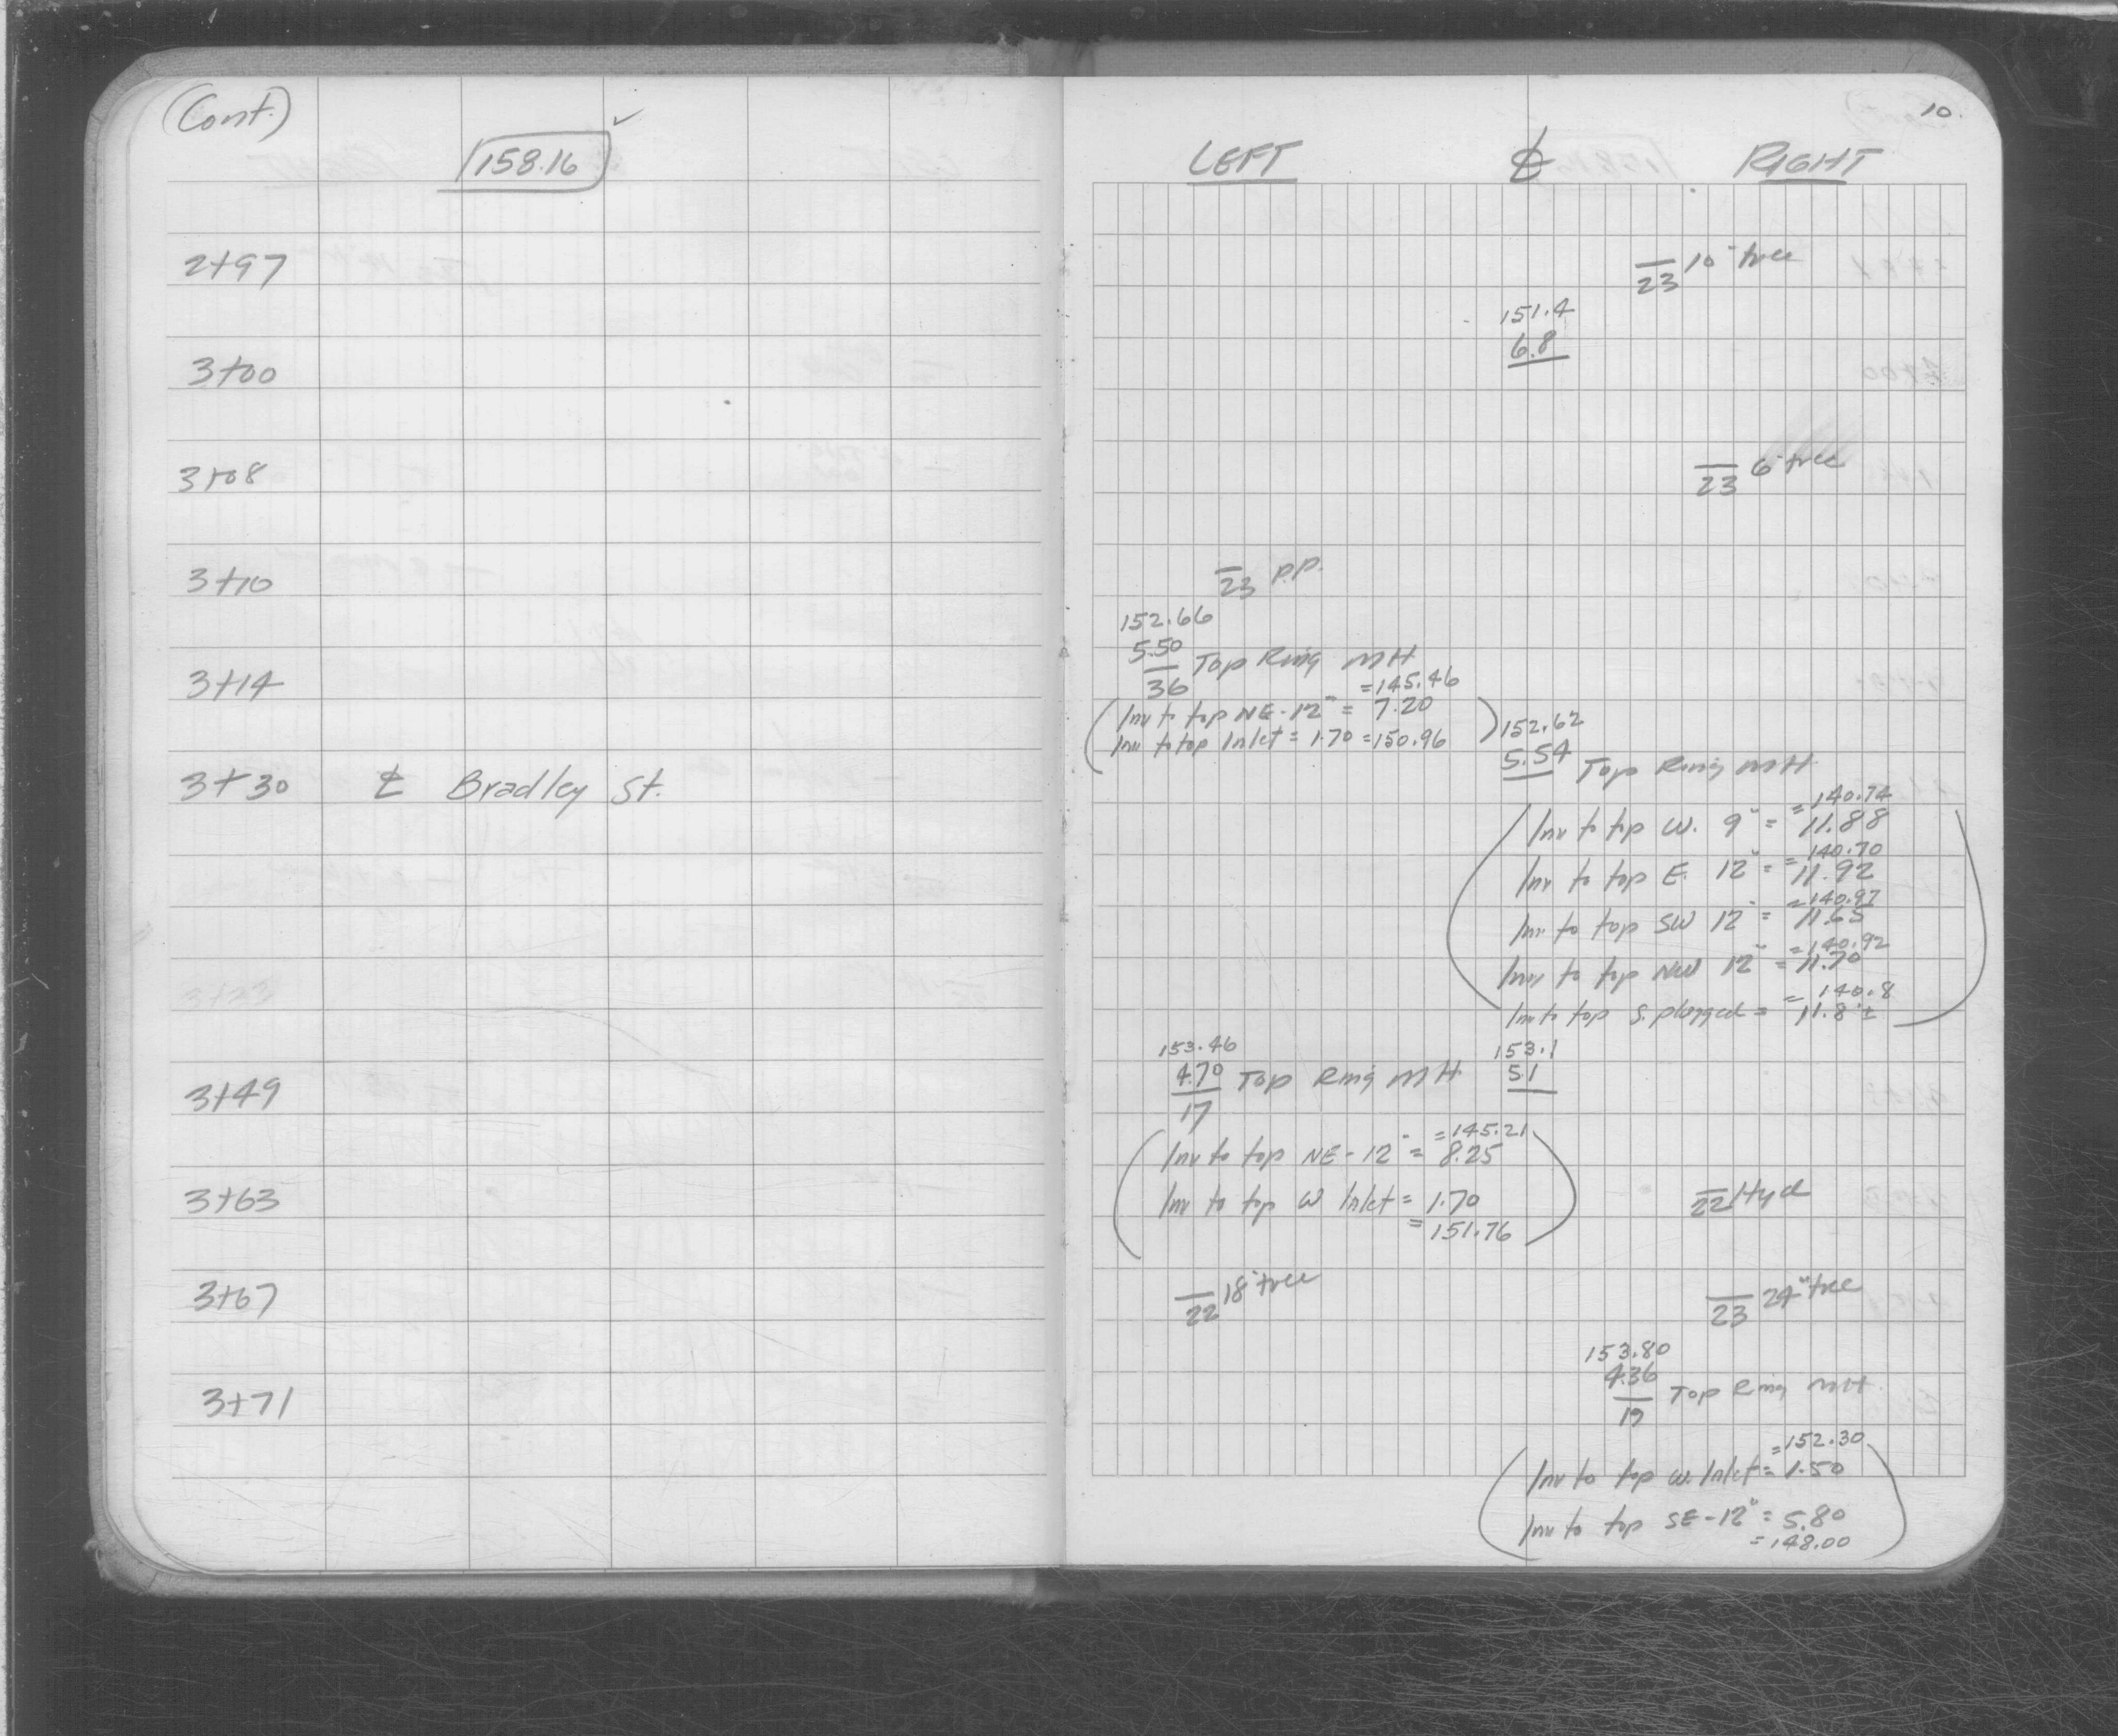 (Cont.)
158.16 ✓
10.
LEFT ℄ RIGHT
2+97
23 10" tree
151.4
6.8
3+00
3+08
23 6" tree
3+10
23 P.P.
152.66
5.50
36 Top Ring MH
3+14
=145.46
(Inv to top NE-12" = 7.20
Inv to top Inlet = 1.70 =150.96)
152.62
5.54 Top Ring MH
3+30 ℄ Bradley St.
=140.74
(Inv to top W. 9" = 11.88
=140.70
Inv to top E. 12" = 11.92
=140.97
Inv to top SW 12" = 11.65
=140.92
Inv to top NW 12" = 11.70
= 140.8
Inv to top S. plugged = 11.8±)
153.46
4.70 Top Ring MH
17
153.1
5.1
3+49
=145.21
(Inv to top NE-12" = 8.25
Inv to top W Inlet = 1.70
= 151.76)
3+63
22 Hyd
3+67
22 18" tree
23 24" tree
153.80
4.36
19 Top Ring MH
3+71
=152.30
(Inv to top W. Inlet = 1.50
Inv to top SE-12" = 5.80
=148.00)